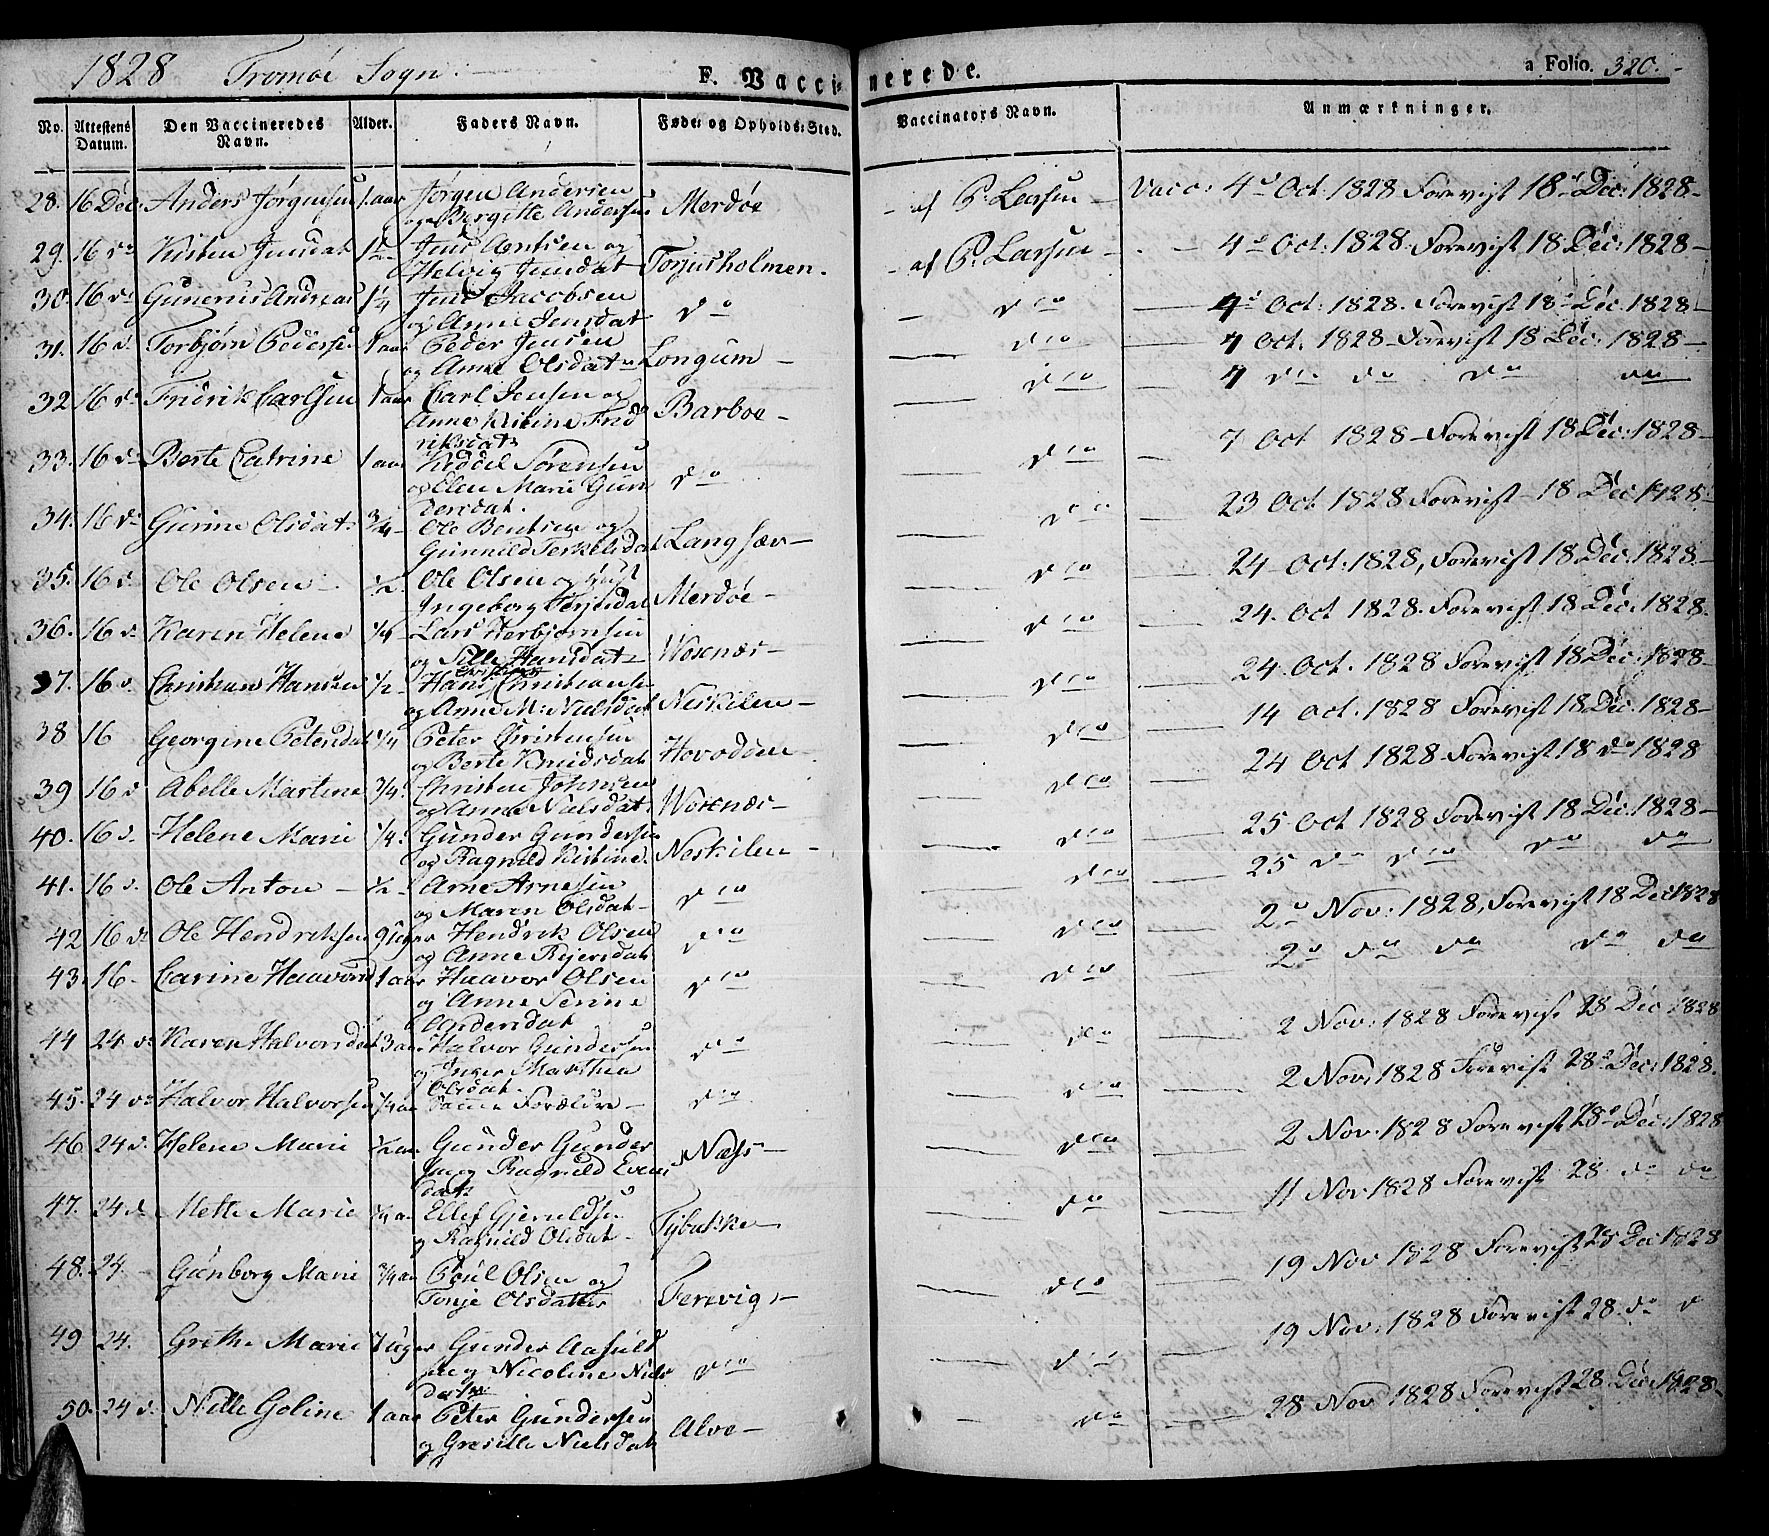 1828 Tromøe Sogn. F. Vaccinerede. a Folio. 320.
No. Attestens Datum. Den Vaccineredes Navn. Alder. Faders Navn. Føde- og Opholds-Sted. Vaccinators Navn. Anmærkninger.
28. 16 Dec: Anders Jørgensen 1 aar Jørgen Andersen Merdøe af P. Larsen Vacc: 4d Oct: 1828 Forevist 18d Dec: 1828
og Bergitte Andersen
29. 16 do Kisten Jensdat Jens Arntsen og Torjusholmen. af P. Larsen 4d Oct. 1828. Forevist 18 Dec: 1828
Helvig Jensdat
30. 16 do Gunerus Andreas 1/4 Jens Jacobsen do do 4d Oct: 1828. Forevist 18d Dec. 1828
og Anne Jensdat
31. 16 d. Torbjørn Pedersen 1 aar Peder Jensen Longum do 7 Oct. 1828 Forevist 18 Dec: 1828
og Anne Olsdat
32 16 do Fridrik Carlsen 1 aar Carl Jensen og Barboe do 7 do do do do
Anne Kistine Frid
riksdat
33. 16 do Berte Catrine 1 aar Kiddel Sørensen do do 7 Oct 1828 Forevist 18 Dec: 1828
og Elen Marie Gun
dersdat.
34. 16 do Gurine Olsdat 3/4 Ole Bentsen og Langsæv do 23 Oct 1828 Forevist 18 Dec 1828.
Gunnild Terkelsdat
35. 16 d Ole Olsen 1/2 Ole Olsen og Merdøe do 24 Oct: 1828, Forevist 18 Dec: 1828
Ingeborg Terjesdat
36. 16 d. Karen Helene 1/4 Lars Herbjørnsen Wosenæs do 24. Oct 1828. Forevist 18 Dec. 1828.
og Sille Hansdat
37. 16 d. Christian Hansen 1/2 Hans Christiansen Neskilen do 24 Oct. 1828 Forevist 18 Dec: 1828
og Anne M: Nielsdat
38 16 Georgine Petersdat 1/4 Peter Christensen Hovodden do 14 Oct. 1828 Forevist 18 Dec. 1828
og Berte Knudsdat
39 16 d Abelle Martine 3/4 Christen Johnsen Wosenæs do 24 Oct 1828 Forevist 18 do 1828
og Anne Nielsdat
40. 16 d. Helene Marie 1/4. Gunder Gundersen Neskilen do 25 Oct 1828 Forevist 18 Dec: 1828
og Ragnild Kistine.
41. 16 d. Ole Anton 1/2 Arne Arnesen do do 25 do do do do
og Maren Olsdat
42 16 do Ole Hendriksen 9 Uger Hendrik Olsen do do 2d Nov: 1828, Forevist 18 Dec 1828
og Anne Reiersdat
43. 16 Carine Haavors 1 aar Haavor Olsen do do 2d do do do do
og Anne Serine
Andersdat
44 24 do Karen Halvorsdat 3 aar Halvor Gundersen do do 2 Nov: 1828 Forevist 28 Dec 1828
og Inger Marthea
Olsdat
45. 24 do Halvor Halvorsen 1/4 aar Samme Forældre do do 2 Nov: 1828 Forevist 28d Dec: 1828.
46 24 d. Helene Marie 1/2 aar Gunder Gunder Næss do 2 Nov. 1828 Forevist 28d Dec: 1828
sen og Ragnild Evens
dat
47. 24 d. Mette Marie 1/4 aar Ellef Gjeruldsen Tybakke do 11 Nov. 1828 Forevist 28 do do
og Ragnild Olsdat
48. 24. Gunborg Marie 3/4 aar Poul Olsen og Fervig do 19 Nov 1828 Forevist 28 Dec 1828
Tonje Olsdatter
49 24. Grethe Marie 7 Uger Gunder Aasuld do do 19 Nov: 1828 Forevist 28. do d
sen og Nicoline Niels
datter
50. 24 d. Nille Goline 1 aar Peter Gundersen Alve do 28 Nov 1828 Forevist 28 Dec 1828
og Greselle Nielsdat